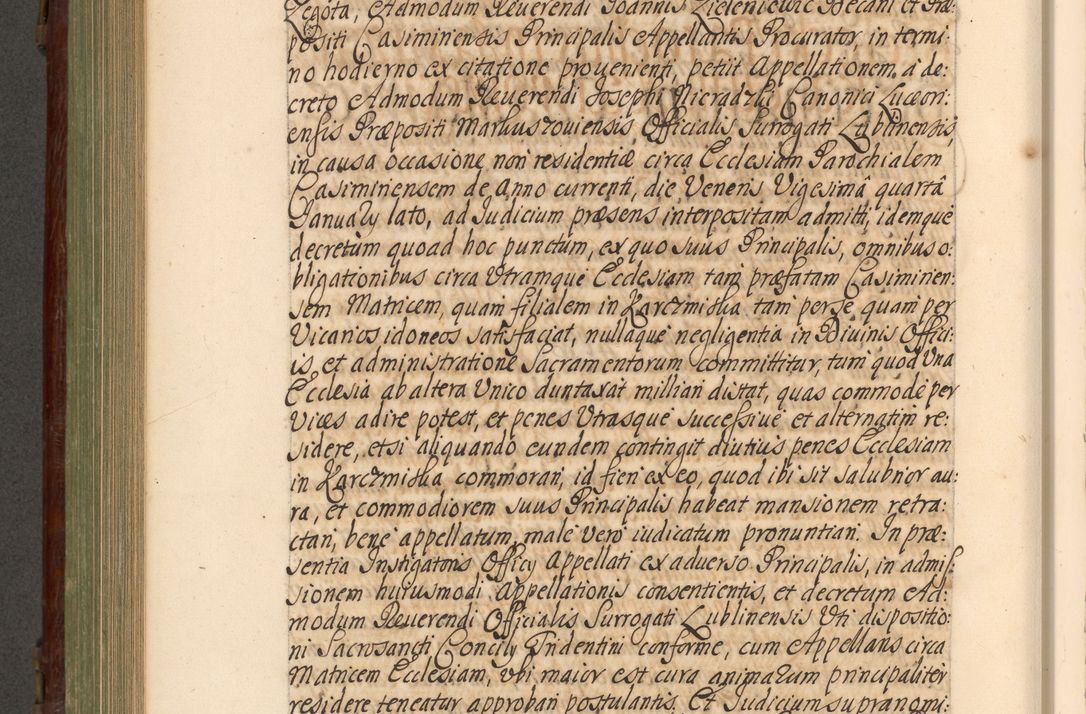 Zegota, Admodum Reverendi Joannis Zieleniewic Decani et Præ:
positi Casiminensis Principalis Appellantis Procurator, in termi:
no hodierno ex citatione provenienti, petiit Appellationem à de:
creto Admodum Reuerendi Josephi Nieradzki Canonici Luceori:
ensis Præpositi Markuszouiensis, Officialis Surrogati Lublinensis,
in causa occasione non residentiæ circa Ecclesiam Parochialem
Casiminensem de Anno currenti, die Veneris Vigesimâ quartâ
January lato, ad Judicium præsens interpositam admitti, idemque
decretum quoad hoc punctum, ex quo suus Principalis, omnibus o:
bligationibus circa Utramque Ecclesiam tam præfatam Casiminen:
sem Matricem, quam filialem in Karczmiska tam per se, quam per
Vicarios idoneos satisfaciat, nullaque negligentia in Divinis Offici:
is, et administratione Sacramentorum committitur, tum quod Una
Ecclesia ab altera Unico duntaxat milliari distat, quas commodè per
Vices adire potest, et penes Utrasque successivè et alternatim re:
sidere, etsi aliquando eundem contingit diutius penes Ecclesiam
in Karczmiska commorari, id fieri ex eo, quod ibi sit salubrior au:
ra, et commodiorem suus Principalis habeat mansionem retra:
ctari, bene appellatum, malè verò iudicatum pronuntiari. In præ:
sentia Instigatoris Officy Appellati ex adverso Principalis, in admis:
sionem huiusmodi Appellationis consentientis, et decretum Ad:
modum Reuerendi Officialis Surrogati Lublinensis Uti dispositio:
ni Sacrosancti Concily Tridentini conforme, cum Appellans circa
Matricem Ecclesiam, ubi maior est cura animarum principaliter
residere teneatur approbari postulantis. Et Judicium supranomi: